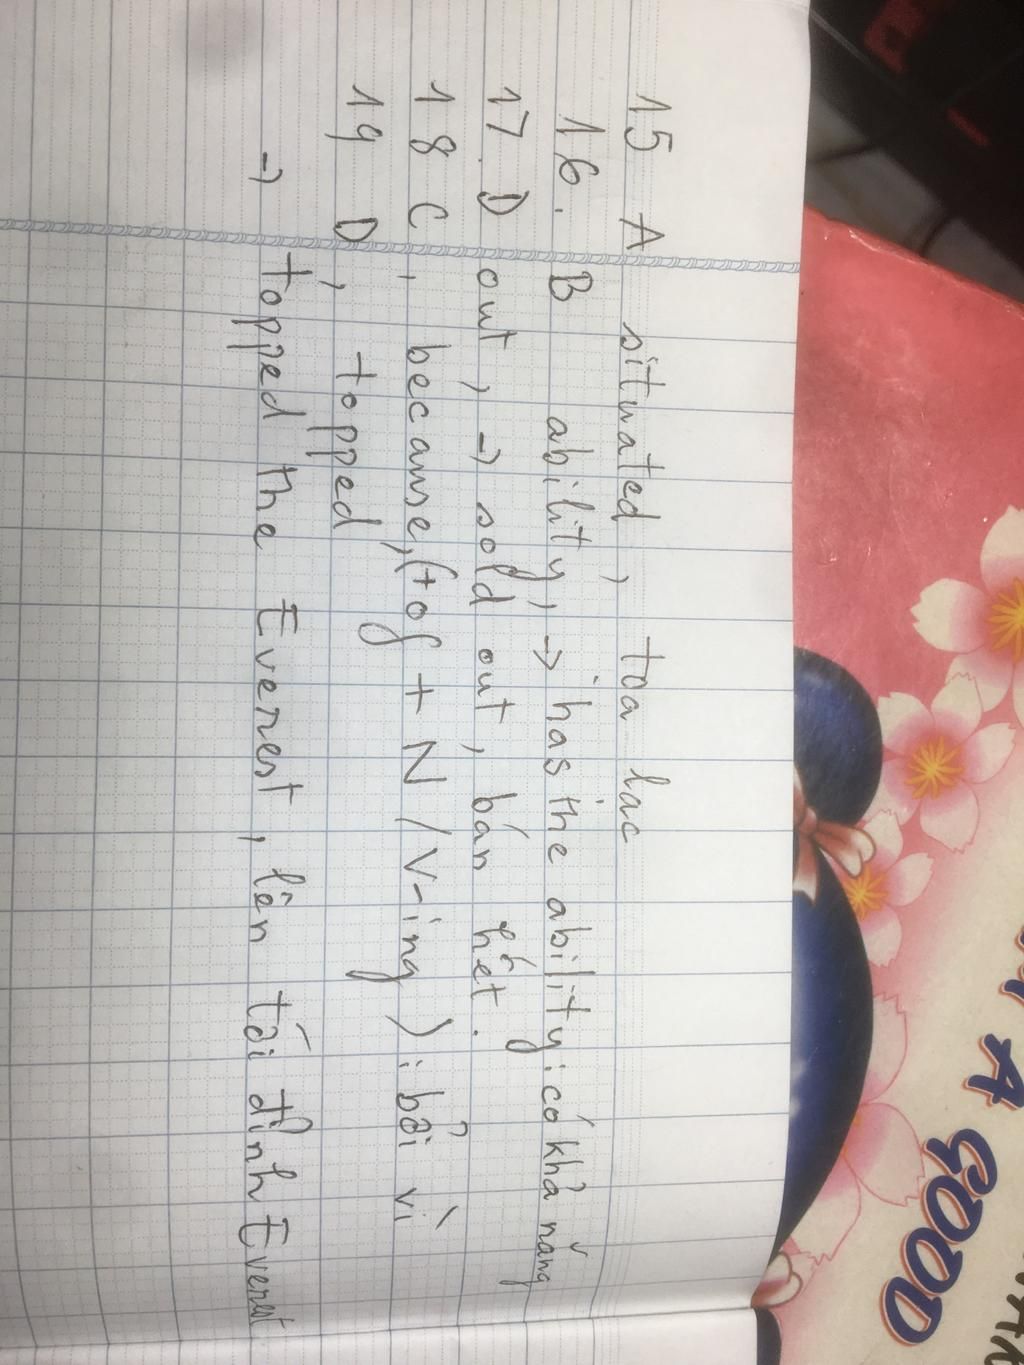 15 A situated, toạ lạc
16. B ability, → has the ability: có khả năng
17. D out, → sold out, bán hết.
18 C, because, (+of + N / V-ing): bởi vì
19 D, topped
→ topped the Everest, lên tới đỉnh Everest
A GOOD